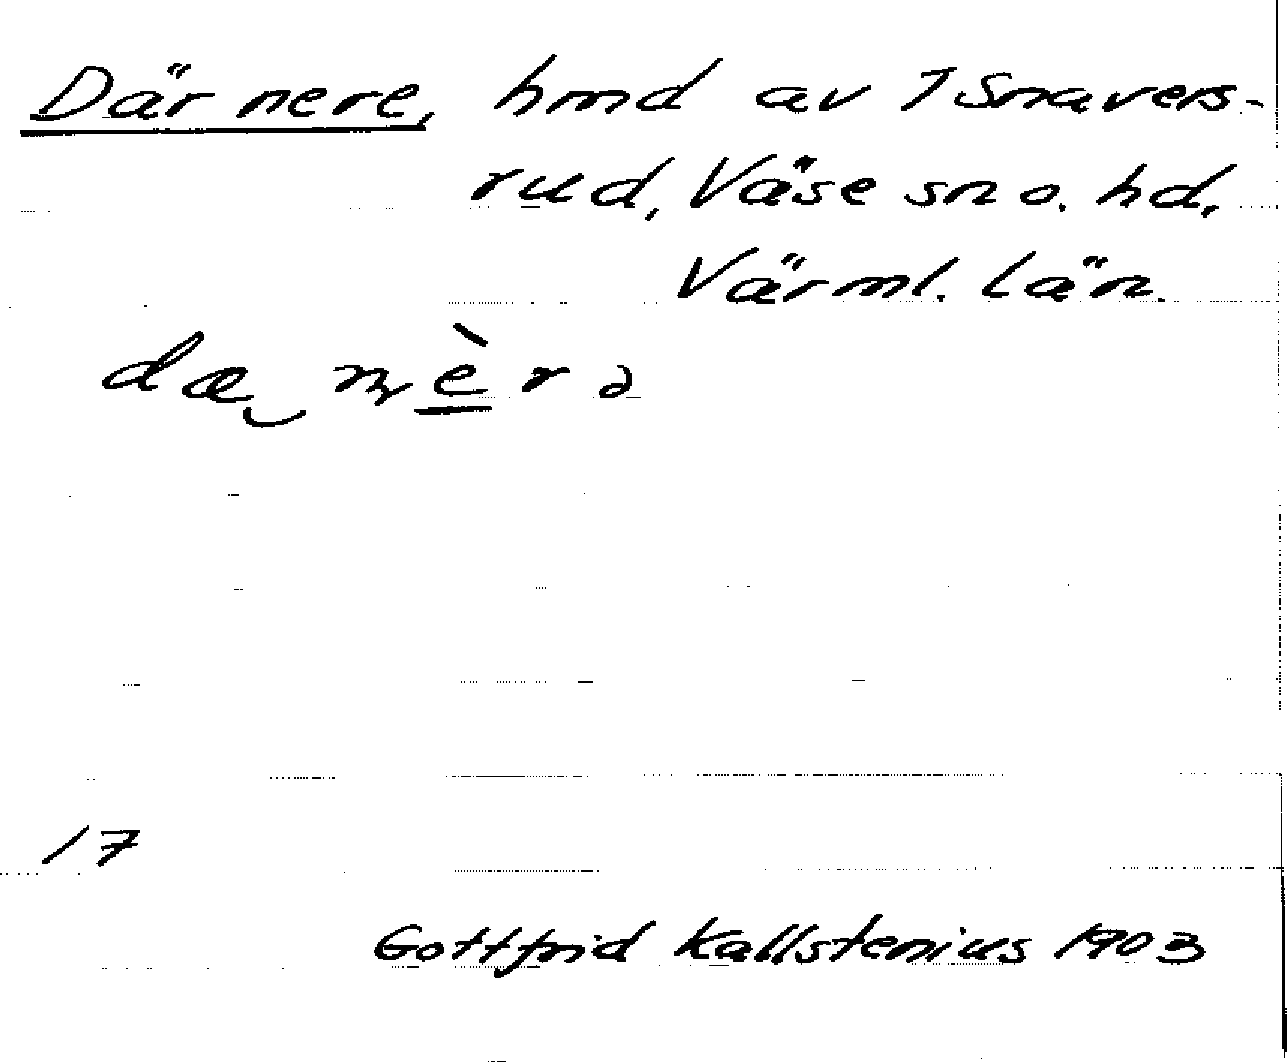 Där nere, hmd av 7 Snavers-
rud, Väse sn o. hd,
Värml. län.
dæ‿nèrə
17
Gottfrid Kallstenius 1903